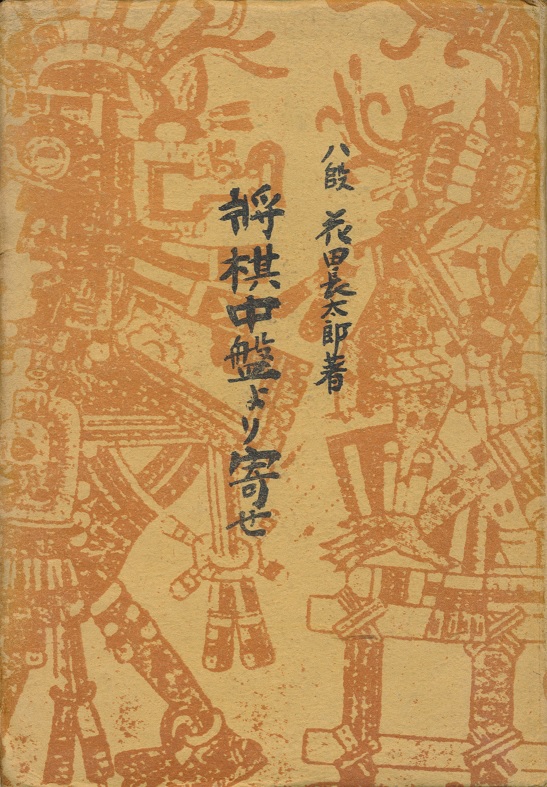 八段 花田長太郎著
将棋中盤より寄せ